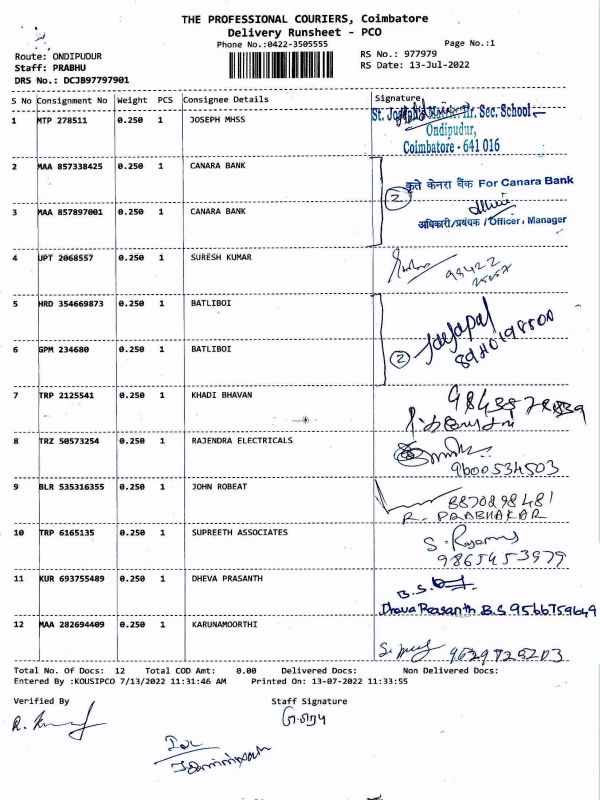 THE PROFESSIONAL COURIERS, Coimbatore
Delivery Runsheet - PCO
Phone No.:0422-3505555
Page No.:1
Route: ONDIPUDUR
RS No.: 977979
Staff: PRABHU
RS Date: 13-Jul-2022
DRS No.: DCJB97797901
S No Consignment No Weight PCS Consignee Details Signature
1 MTP 278511 0.250 1 JOSEPH MHSS
St. Joseph's Matric. Hr. Sec. School
Ondipudur,
Coimbatore - 641 016
2 MAA 857338425 0.250 1 CANARA BANK
कृते केनरा बैंक For Canara Bank
2
3 MAA 857897001 0.250 1 CANARA BANK
अधिकारी/प्रबंधक / Officer, Manager
4 UPT 2068557 0.250 1 SURESH KUMAR
98422
5 HRD 354669873 0.250 1 BATLIBOI
Jayapal
6 GPM 234680 0.250 1 BATLIBOI
2
7 TRP 2125541 0.250 1 KHADI BHAVAN
8 TRZ 50573254 0.250 1 RAJENDRA ELECTRICALS
9600534503
9 BLR 535316355 0.250 1 JOHN ROBEAT
8870298481
R. PRABHAKAR
10 TRP 6165135 0.250 1 SUPREETH ASSOCIATES
9865453979
11 KUR 693755489 0.250 1 DHEVA PRASANTH
B.S.
Dheva Prasanth B.S 9566759649
12 MAA 282694409 0.250 1 KARUNAMOORTHI
9629725203
Total No. Of Docs: 12 Total COD Amt: 0.00 Delivered Docs: Non Delivered Docs:
Entered By :KOUSIPCO 7/13/2022 11:31:46 AM Printed On: 13-07-2022 11:33:55
Verified By Staff Signature